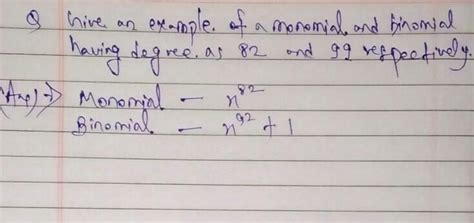 Q Give an example. of a monomial and binomial
having degree. as 82 and 99 respectively.
Ans) → Monomial — x⁸²
Binomial — x⁹² + 1